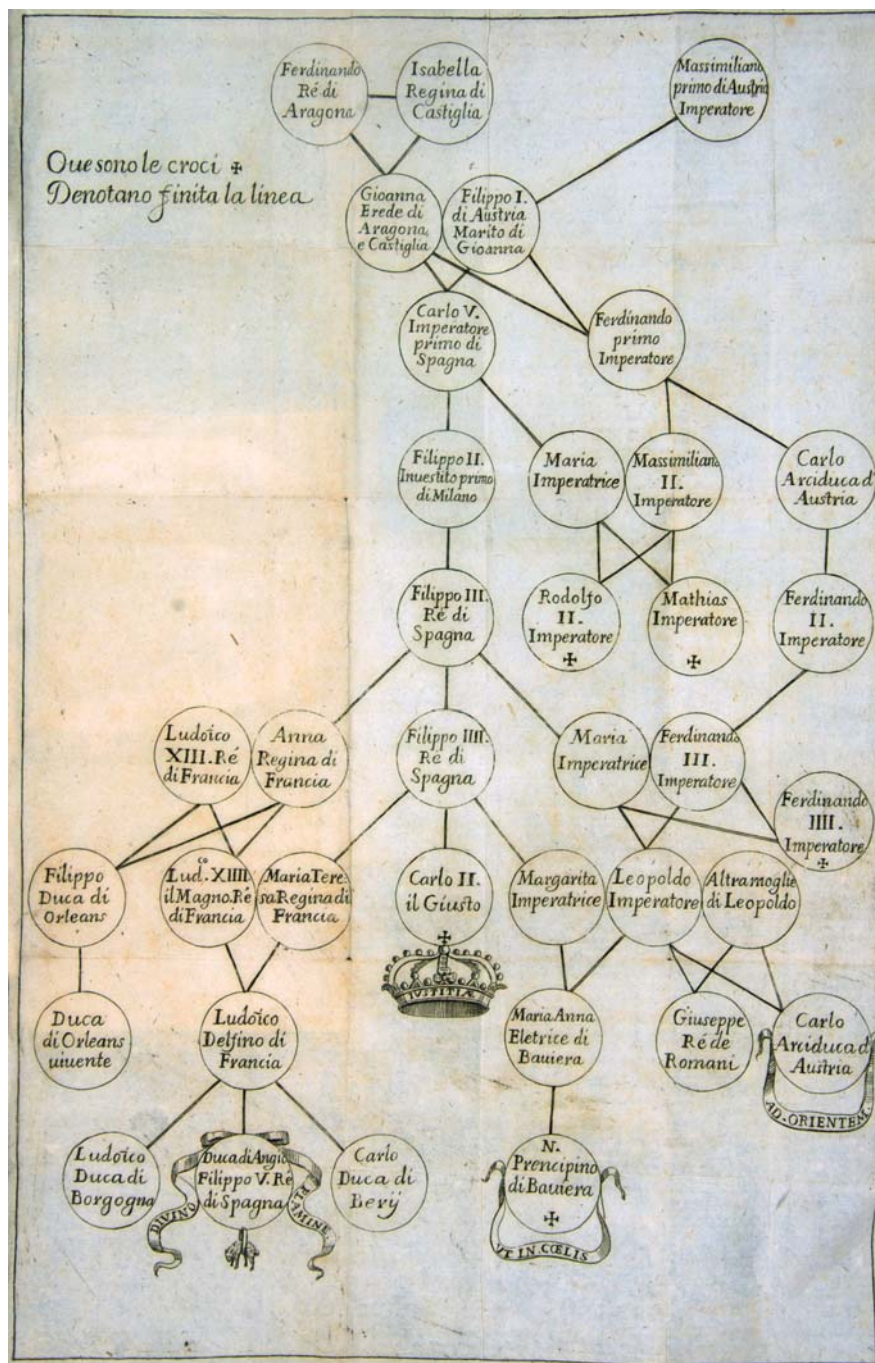 Ferdinando
Ré di
Aragona
Isabella
Regina di
Castiglia
Massimiliano
primo di Austria
Imperatore
Oue sono le croci ✠
Denotano finita la linea
Gioanna
Erede di
Aragona,
e Castiglia
Filippo I.
di Austria
Marito di
Gioanna
Carlo V.
Imperatore
primo di
Spagna
Ferdinando
primo
Imperatore
Filippo II.
Inuestito primo
di Milano
Maria
Imperatrice
Massimiliano
II.
Imperatore
Carlo
Arciduca d'
Austria
Filippo III.
Ré di
Spagna
Rodolfo
II.
Imperatore
✠
Mathias
Imperatore
✠
Ferdinando
II.
Imperatore
Ludoico
XIII. Ré
di Francia
Anna
Regina di
Francia
Filippo IIII.
Ré di
Spagna
Maria
Imperatrice
Ferdinando
III.
Imperatore
Ferdinando
IIII.
Imperatore
✠
Filippo
Duca di
Orleans
Lud.co XIIII.
il Magno. Ré
di Francia
Maria Tere
sa Regina di
Francia
Carlo II.
il Giusto
✠
IVSTITIÆ
Margarita
Imperatrice
Leopoldo
Imperatore
Altra moglie
di Leopoldo
Duca
di Orleans
uiuente
Ludoico
Delfino di
Francia
Maria Anna
Eletrice di
Bauiera
Giuseppe
Ré de
Romani
Carlo
Arciduca d'
Austria
AD. ORIENTEM.
Ludoico
Duca di
Borgogna
Duca di Angio
Filippo V. Ré
di Spagna
DIVINO
FLAMINE
Carlo
Duca di
Berij
N.
Prencipino
di Bauiera
✠
VT IN. CŒLIS